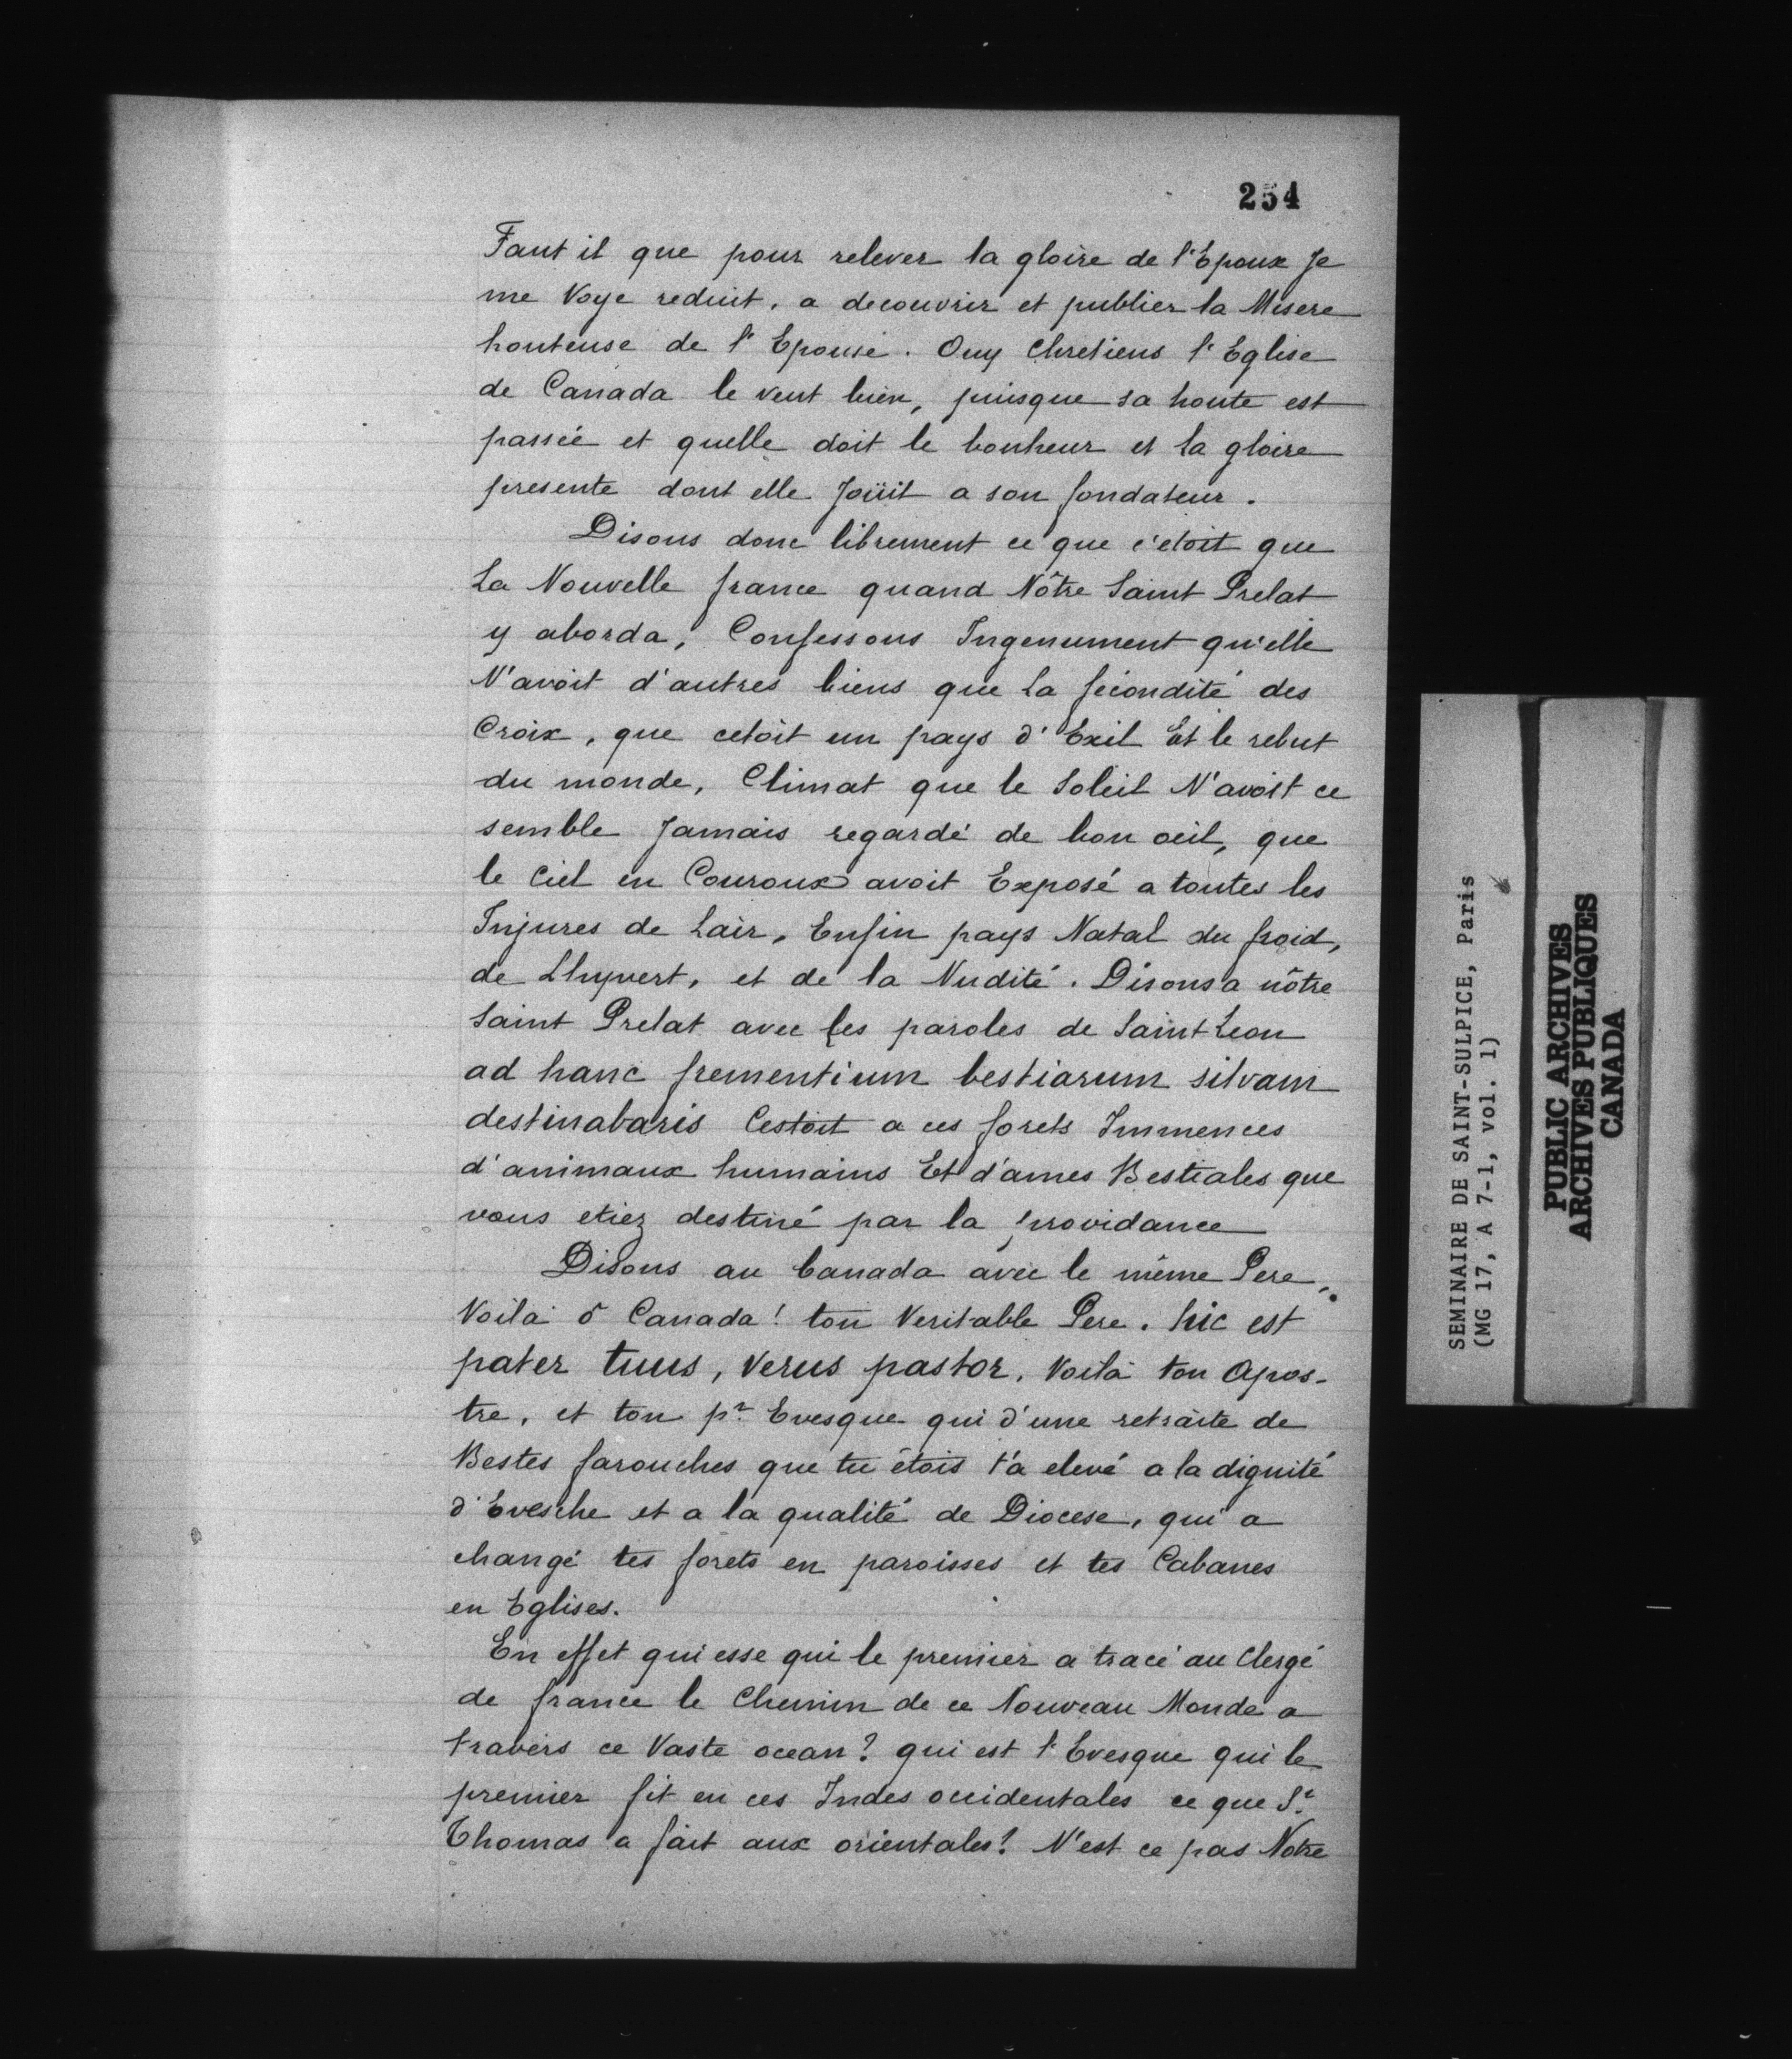 254
Faut il que pour relever la gloire de l'Epoux Je
me Voye reduit, a decouvrir et publier la Misere
honteuse de l'Epouse. Ouy Chretiens l'Eglise
de Canada le veut bien, puisque sa honte est
passée et quelle doit le bonheur et la gloire
presente dont elle Joüit a son fondateur.
Disons donc librement ce que c'etoit que
La Nouvelle france quand Nôtre Saint Prelat
y aborda, Confessons Ingenument qu'elle
N'avoit d'autres biens que la fécondité des
Croix, que cetoit un pays d'Exil Et le rebut
du monde, Climat que le Soleil N'avoit ce
semble Jamais regardé de bon oeil, que
le Ciel en Couroux avoit Exposé a toutes les
Injures de Lair, Enfin pays Natal du froid,
de Lhyvert, et de la Nudité. Disons a nôtre
Saint Prelat avec les paroles de Saint Leon
ad hanc frementium bestiarum silvam
destinabaris Cestoit a ces forets Immences
d'animaux humains Et d'ames Bestiales que
vous etiez destiné par la providance
Disons au Canada avec le même Pere,
Voilà ô Canada! ton Veritable Pere. hic est
pater tuus, verus pastor, Voilà ton Apos-
tre, et ton pr Evesque qui d'une retraite de
Bestes farouches que tu étois t'a elevé a la dignité
d'Evesche et a la qualité de Diocese, qui a
changé tes forets en paroisses et tes Cabanes
en Eglises.
En effet qui esse qui le premier a tracé au Clergé
de france le Chemin de ce Nouveau Monde a
travers ce Vaste ocean? qui est l'Evesque qui le
premier fit en ces Indes occidentales ce que St
Thomas a fait aux orientales? N'est ce pas Notre
SEMINAIRE DE SAINT-SULPICE, Paris
(MG 17, A 7-1, vol. 1)
PUBLIC ARCHIVES
ARCHIVES PUBLIQUES
CANADA